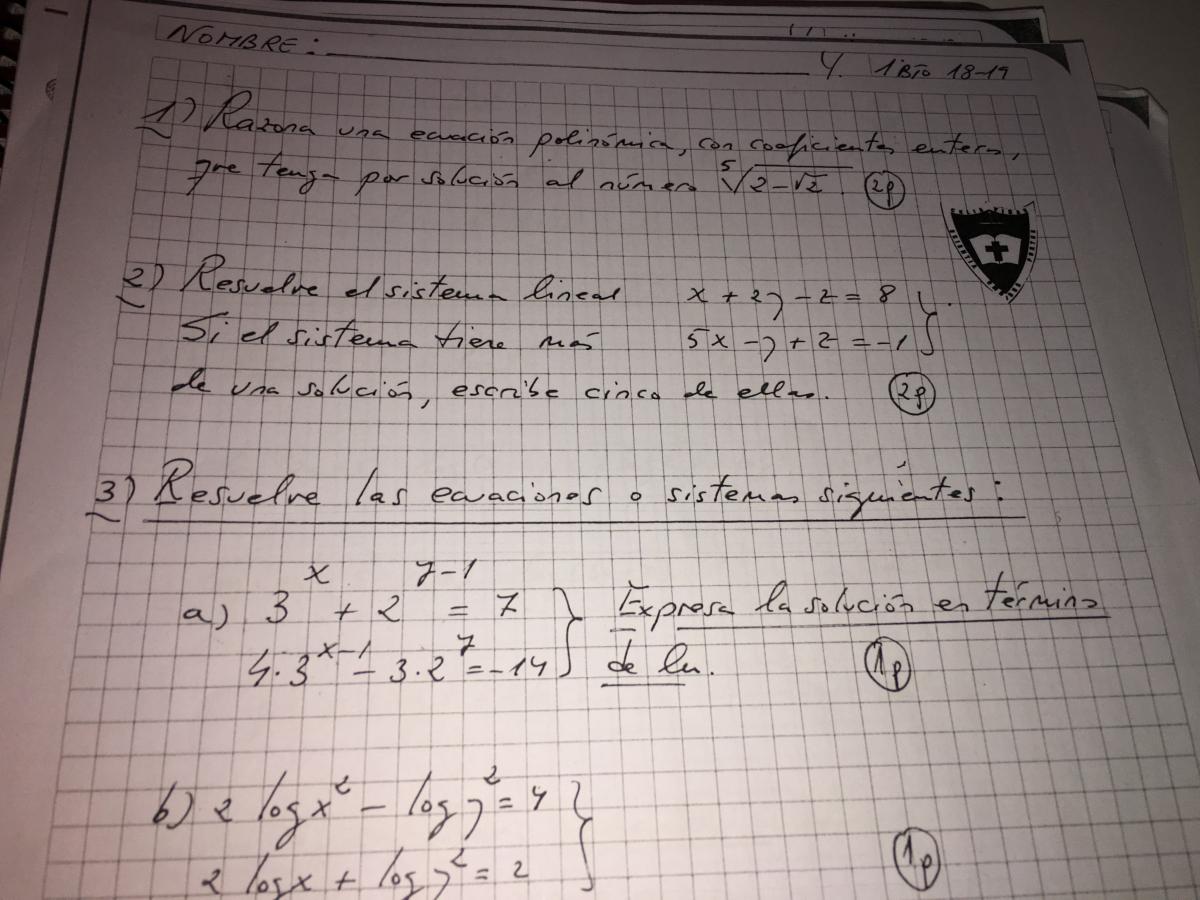 NOMBRE:
Y. 1ºBTO 18-19
1) Razona una ecuación polinómica, con coeficientes enteros,
que tenga por solución al número ⁵√(2-√2). (2p)
2) Resuelve el sistema lineal x + 2y - z = 8
Si el sistema tiene más 5x - y + z = -1
de una solución, escribe cinco de ellas. (2p)
3) Resuelve las ecuaciones o sistemas siguientes:
a) 3^x + 2^(y-1) = 7 Expresa la solución en términos
4·3^(x-1) - 3·2^y = -14 de ln. (1p)
b) 2 log x² - log y² = 4
2 log x + log y² = 2 (1p)